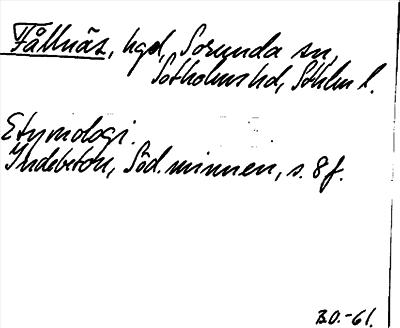 Fållnäs, hgd, Sorunda sn,
Sotholms hd, Sthlm l.
Etymologi.
Indebetou, Söd. minnen, s. 8 f.
B.O.-61.